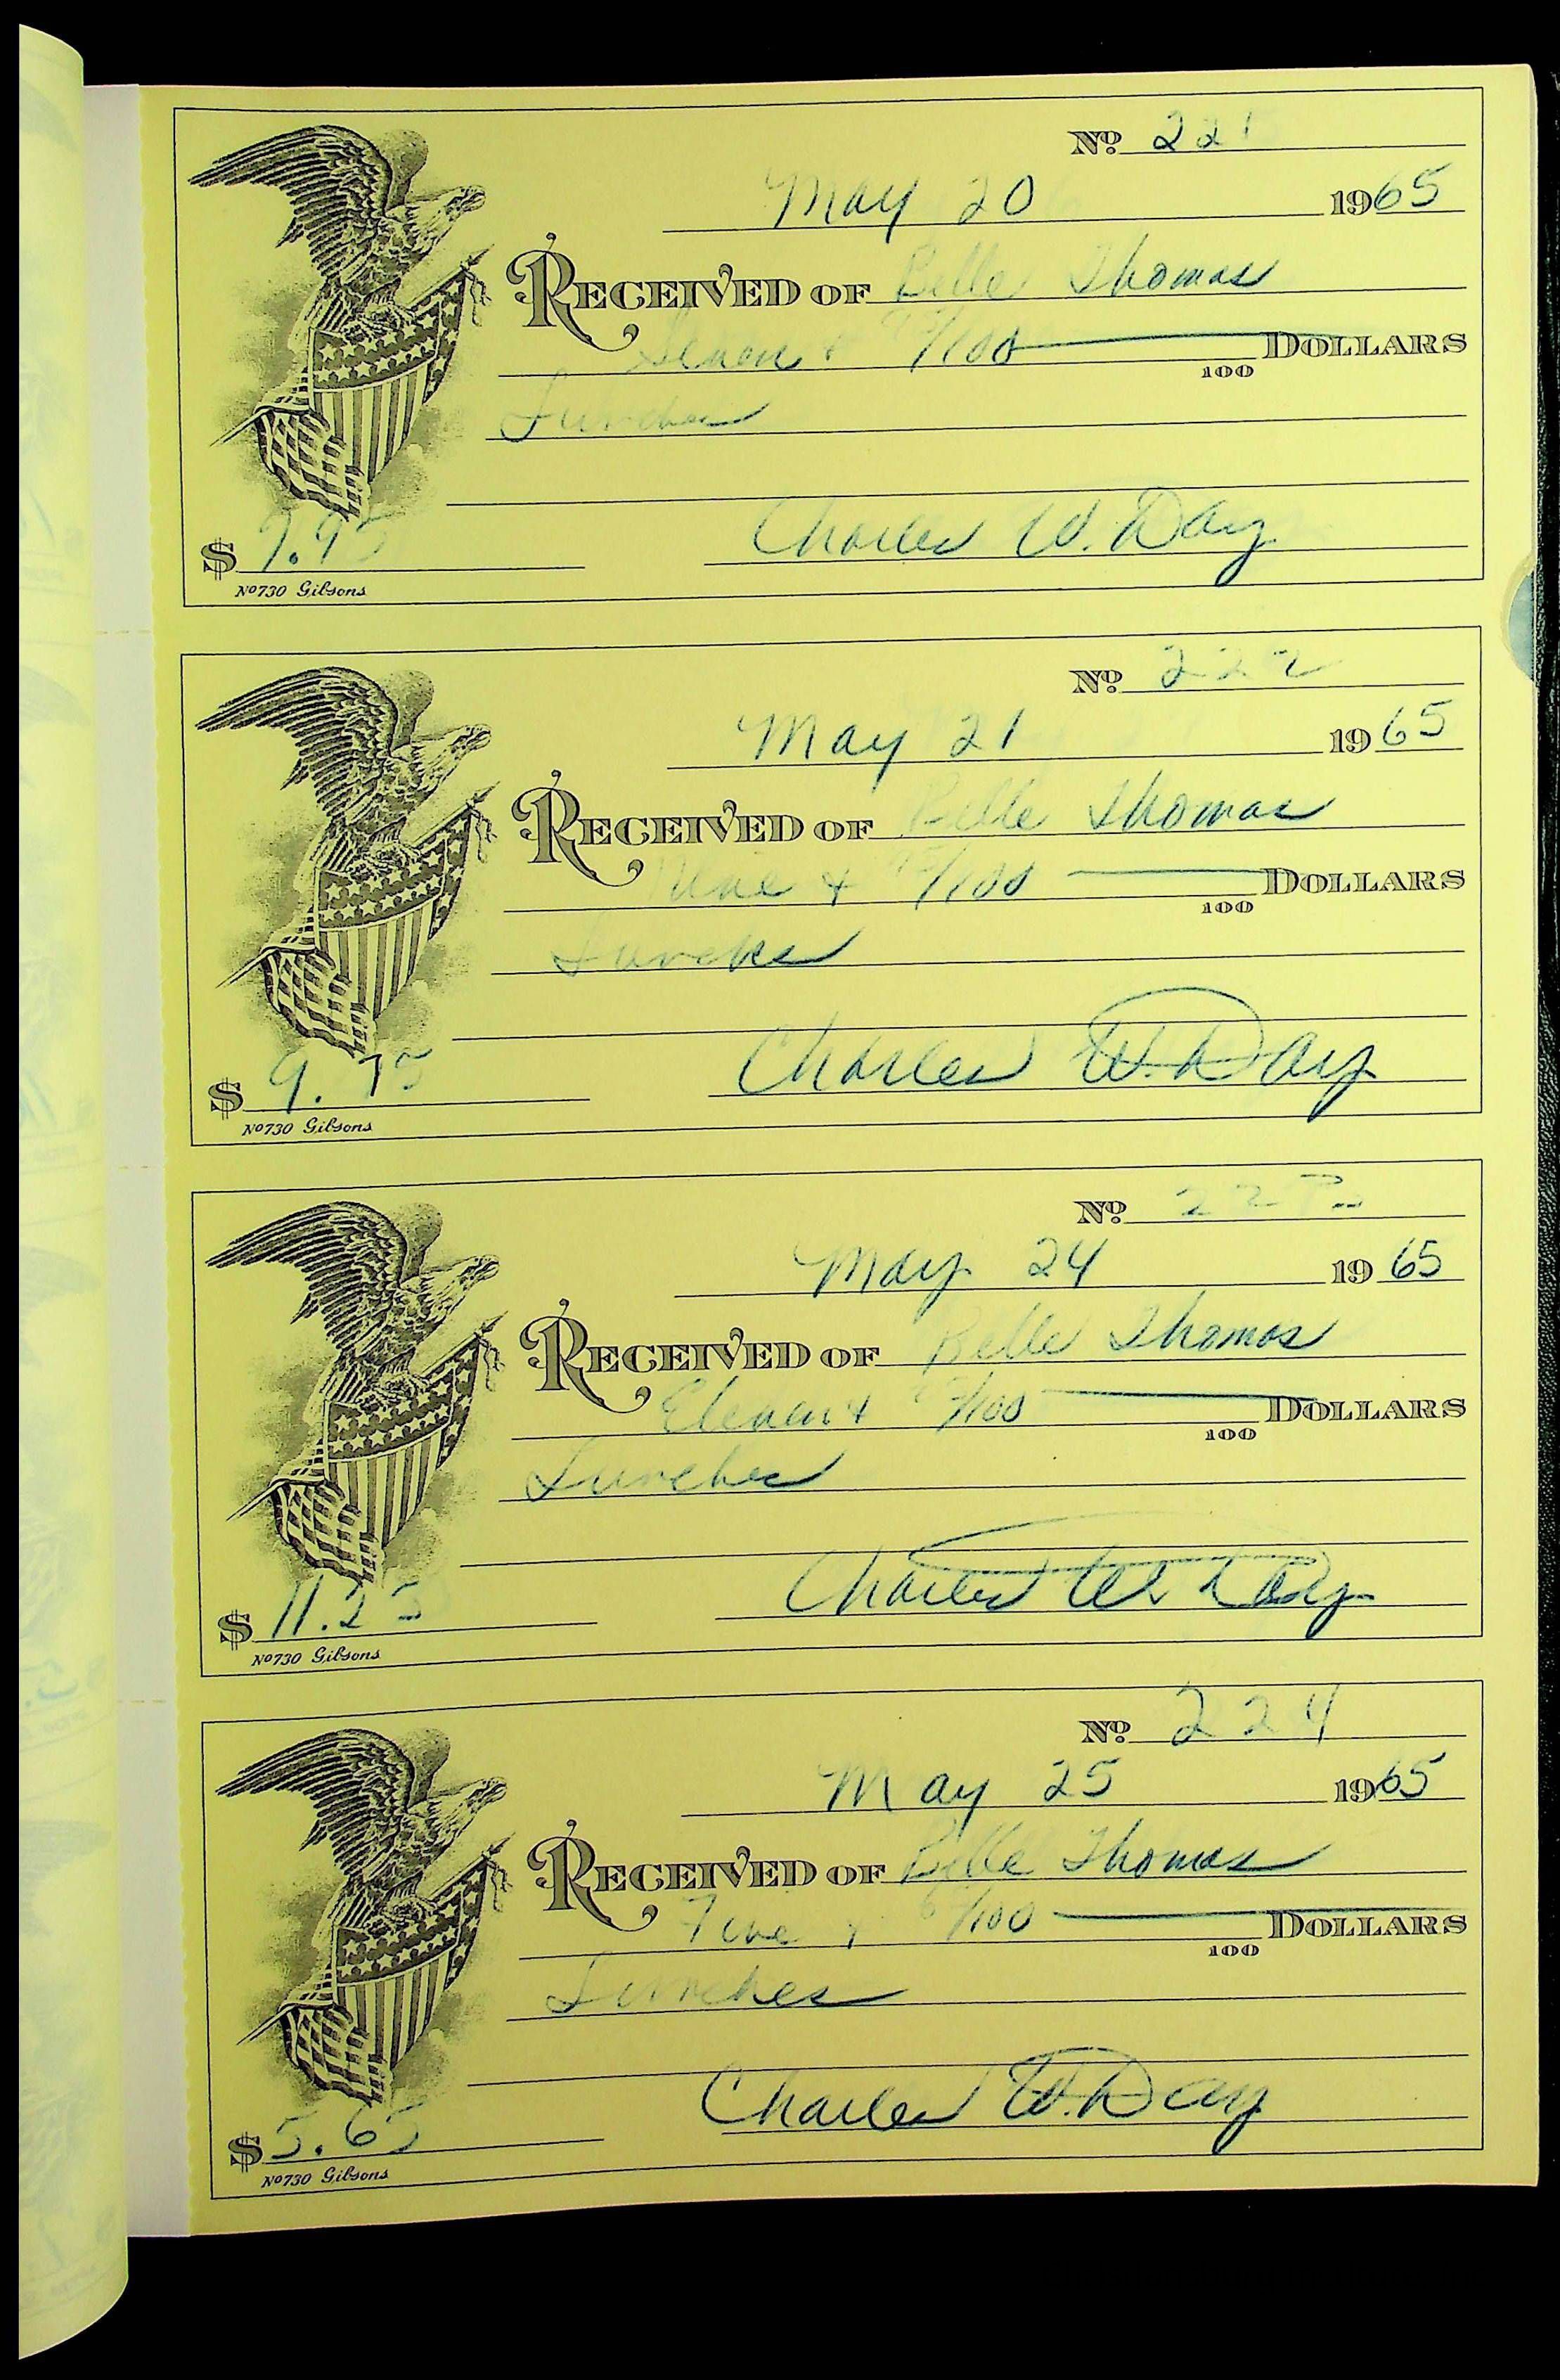 No 221
May 20 1965
RECEIVED OF Belle Thomas
Seven & /100 DOLLARS
100
Lunches
$ 7.95 Charles W. Day
No 730 Gibsons
No 222
May 21 1965
RECEIVED OF Belle Thomas
Nine & /100 DOLLARS
100
Lunches
$ 9.75 Charles W. Day
No 730 Gibsons
No 223
May 24 1965
RECEIVED OF Belle Thomas
Eleven & /100 DOLLARS
100
Lunches
$ 11.25 Charles W. Day
No 730 Gibsons
No 224
May 25 1965
RECEIVED OF Belle Thomas
Five & 65/100 DOLLARS
100
Lunches
$ 5.65 Charles W. Day
No 730 Gibsons